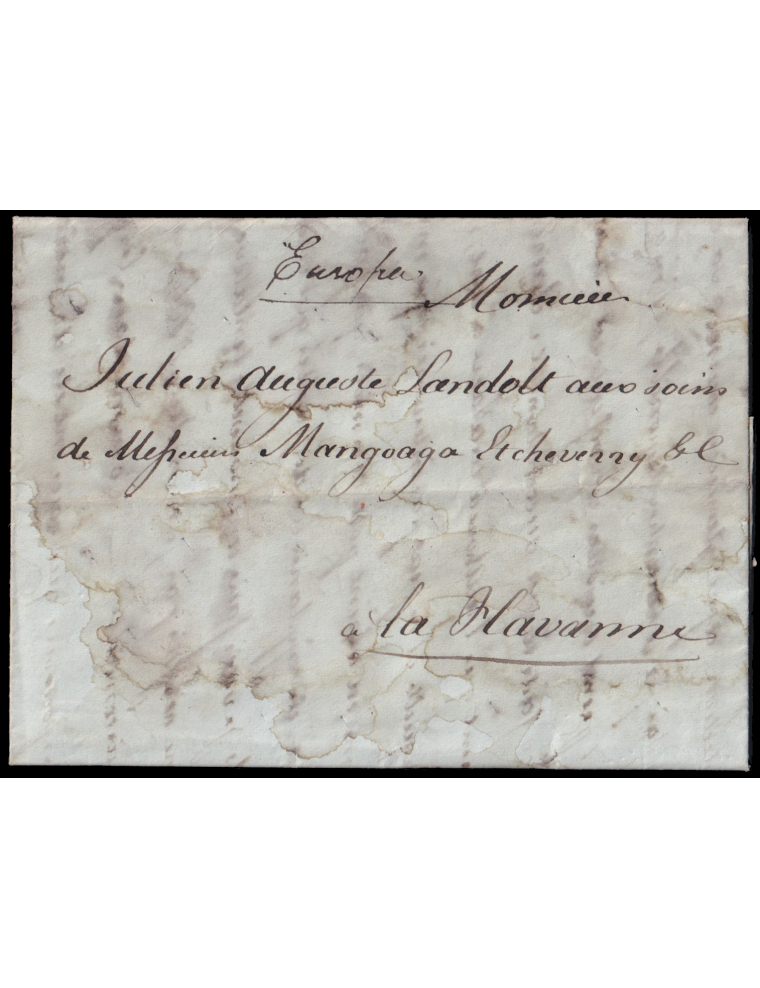 Europa
Monsieur
Julien Auguste Landolt aux soins
de Messieurs Mangoaga Etcheverry & C
a la Havanne